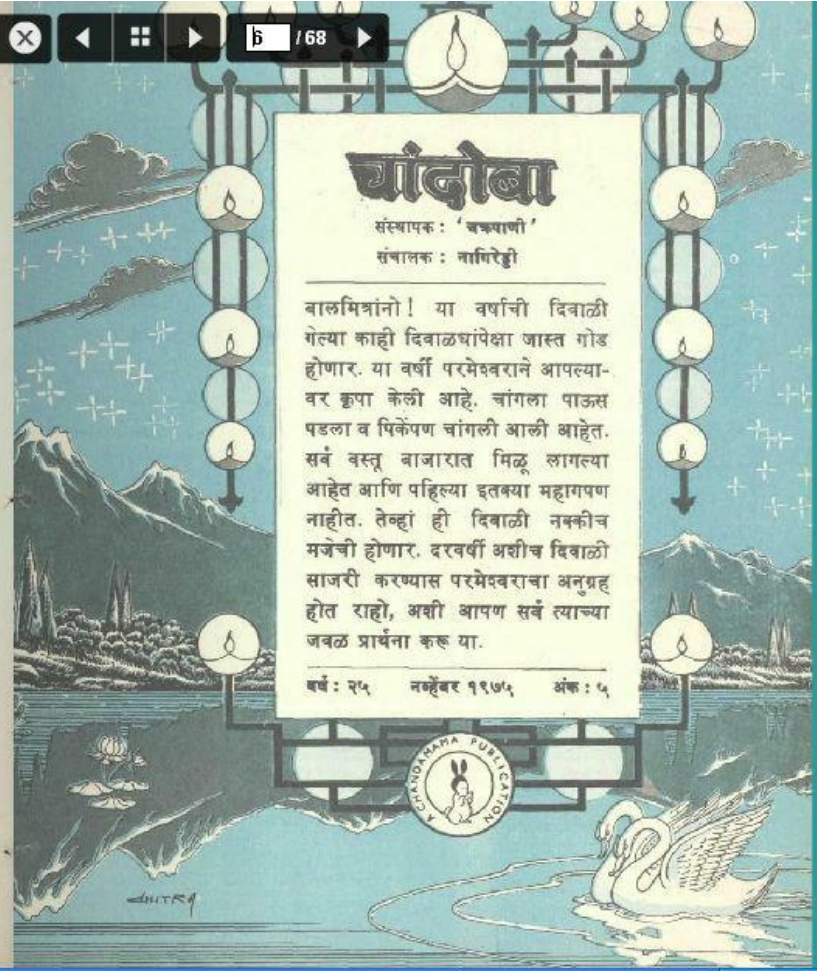 6 / 68
चांदोबा
संस्थापक : ‘चक्रपाणी’
संचालक : नागिरेड्डी
बालमित्रांनो! या वर्षाची दिवाळी
गेल्या काही दिवाळ्यांपेक्षा जास्त गोड
होणार. या वर्षी परमेश्वराने आपल्या-
वर कृपा केली आहे. चांगला पाऊस
पडला व पिकेंपण चांगली आली आहेत.
सर्व वस्तू बाजारात मिळू लागल्या
आहेत आणि पहिल्या इतक्या महागपण
नाहीत. तेव्हां ही दिवाळी नक्कीच
मजेची होणार. दरवर्षी अशीच दिवाळी
साजरी करण्यास परमेश्वराचा अनुग्रह
होत राहो, अशी आपण सर्व त्याच्या
जवळ प्रार्थना करू या.
वर्ष : २५ नव्हेंबर १९७५ अंक : ५
A CHANDAMAMA PUBLICATION
CHITRA